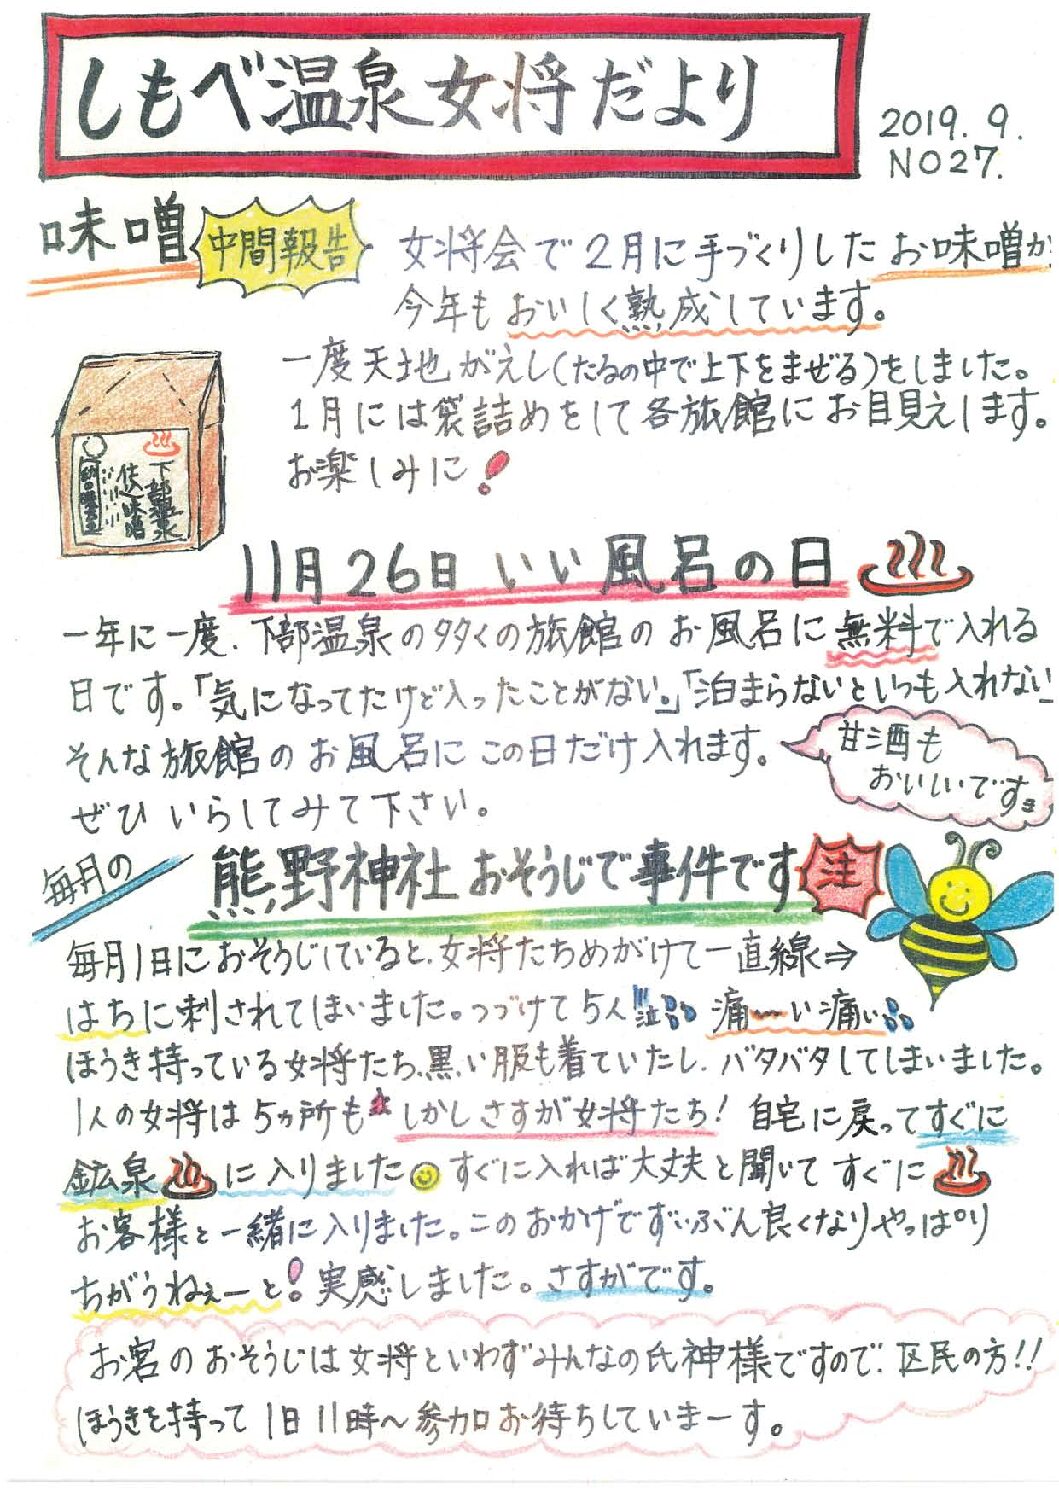 しもべ温泉女将だより
2019. 9.
NO27.
味噌 中間報告
女将会で2月に手づくりしたお味噌が
今年もおいしく熟成しています。
一度天地がえし(たるの中で上下をまぜる)をしました。
1月には袋詰めをして各旅館にお目見えします。
お楽しみに!
下部温泉
味噌
11月26日 いい風呂の日
一年に一度、下部温泉の多くの旅館のお風呂に無料で入れる
日です。「気になってたけど入ったことがない。」「泊まらないといつも入れない」
そんな旅館のお風呂にこの日だけ入れます。
ぜひいらしてみて下さい。
甘酒も
おいしいです
毎月の
熊野神社おそうじで事件です 注
毎月1日におそうじしていると、女将たちめがけて一直線⇒
はちに刺されてしまいました。つづけて5人!!! 痛ーい痛い
ほうき持っている女将たち、黒い服も着ていたし、バタバタしてしまいました。
1人の女将は5ヵ所も しかしさすが女将たち! 自宅に戻ってすぐに
鉱泉に入りました すぐに入れば大丈夫と聞いてすぐに
お客様と一緒に入りました。このおかげでずいぶん良くなりやっぱり
ちがうねぇーと! 実感しました。さすがです。
お宮のおそうじは女将といわずみんなの氏神様ですので、区民の方!!
ほうきを持って1日11時〜参加お待ちしていまーす。